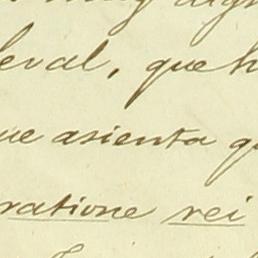 leval, que h
ue asienta q
ratione rei